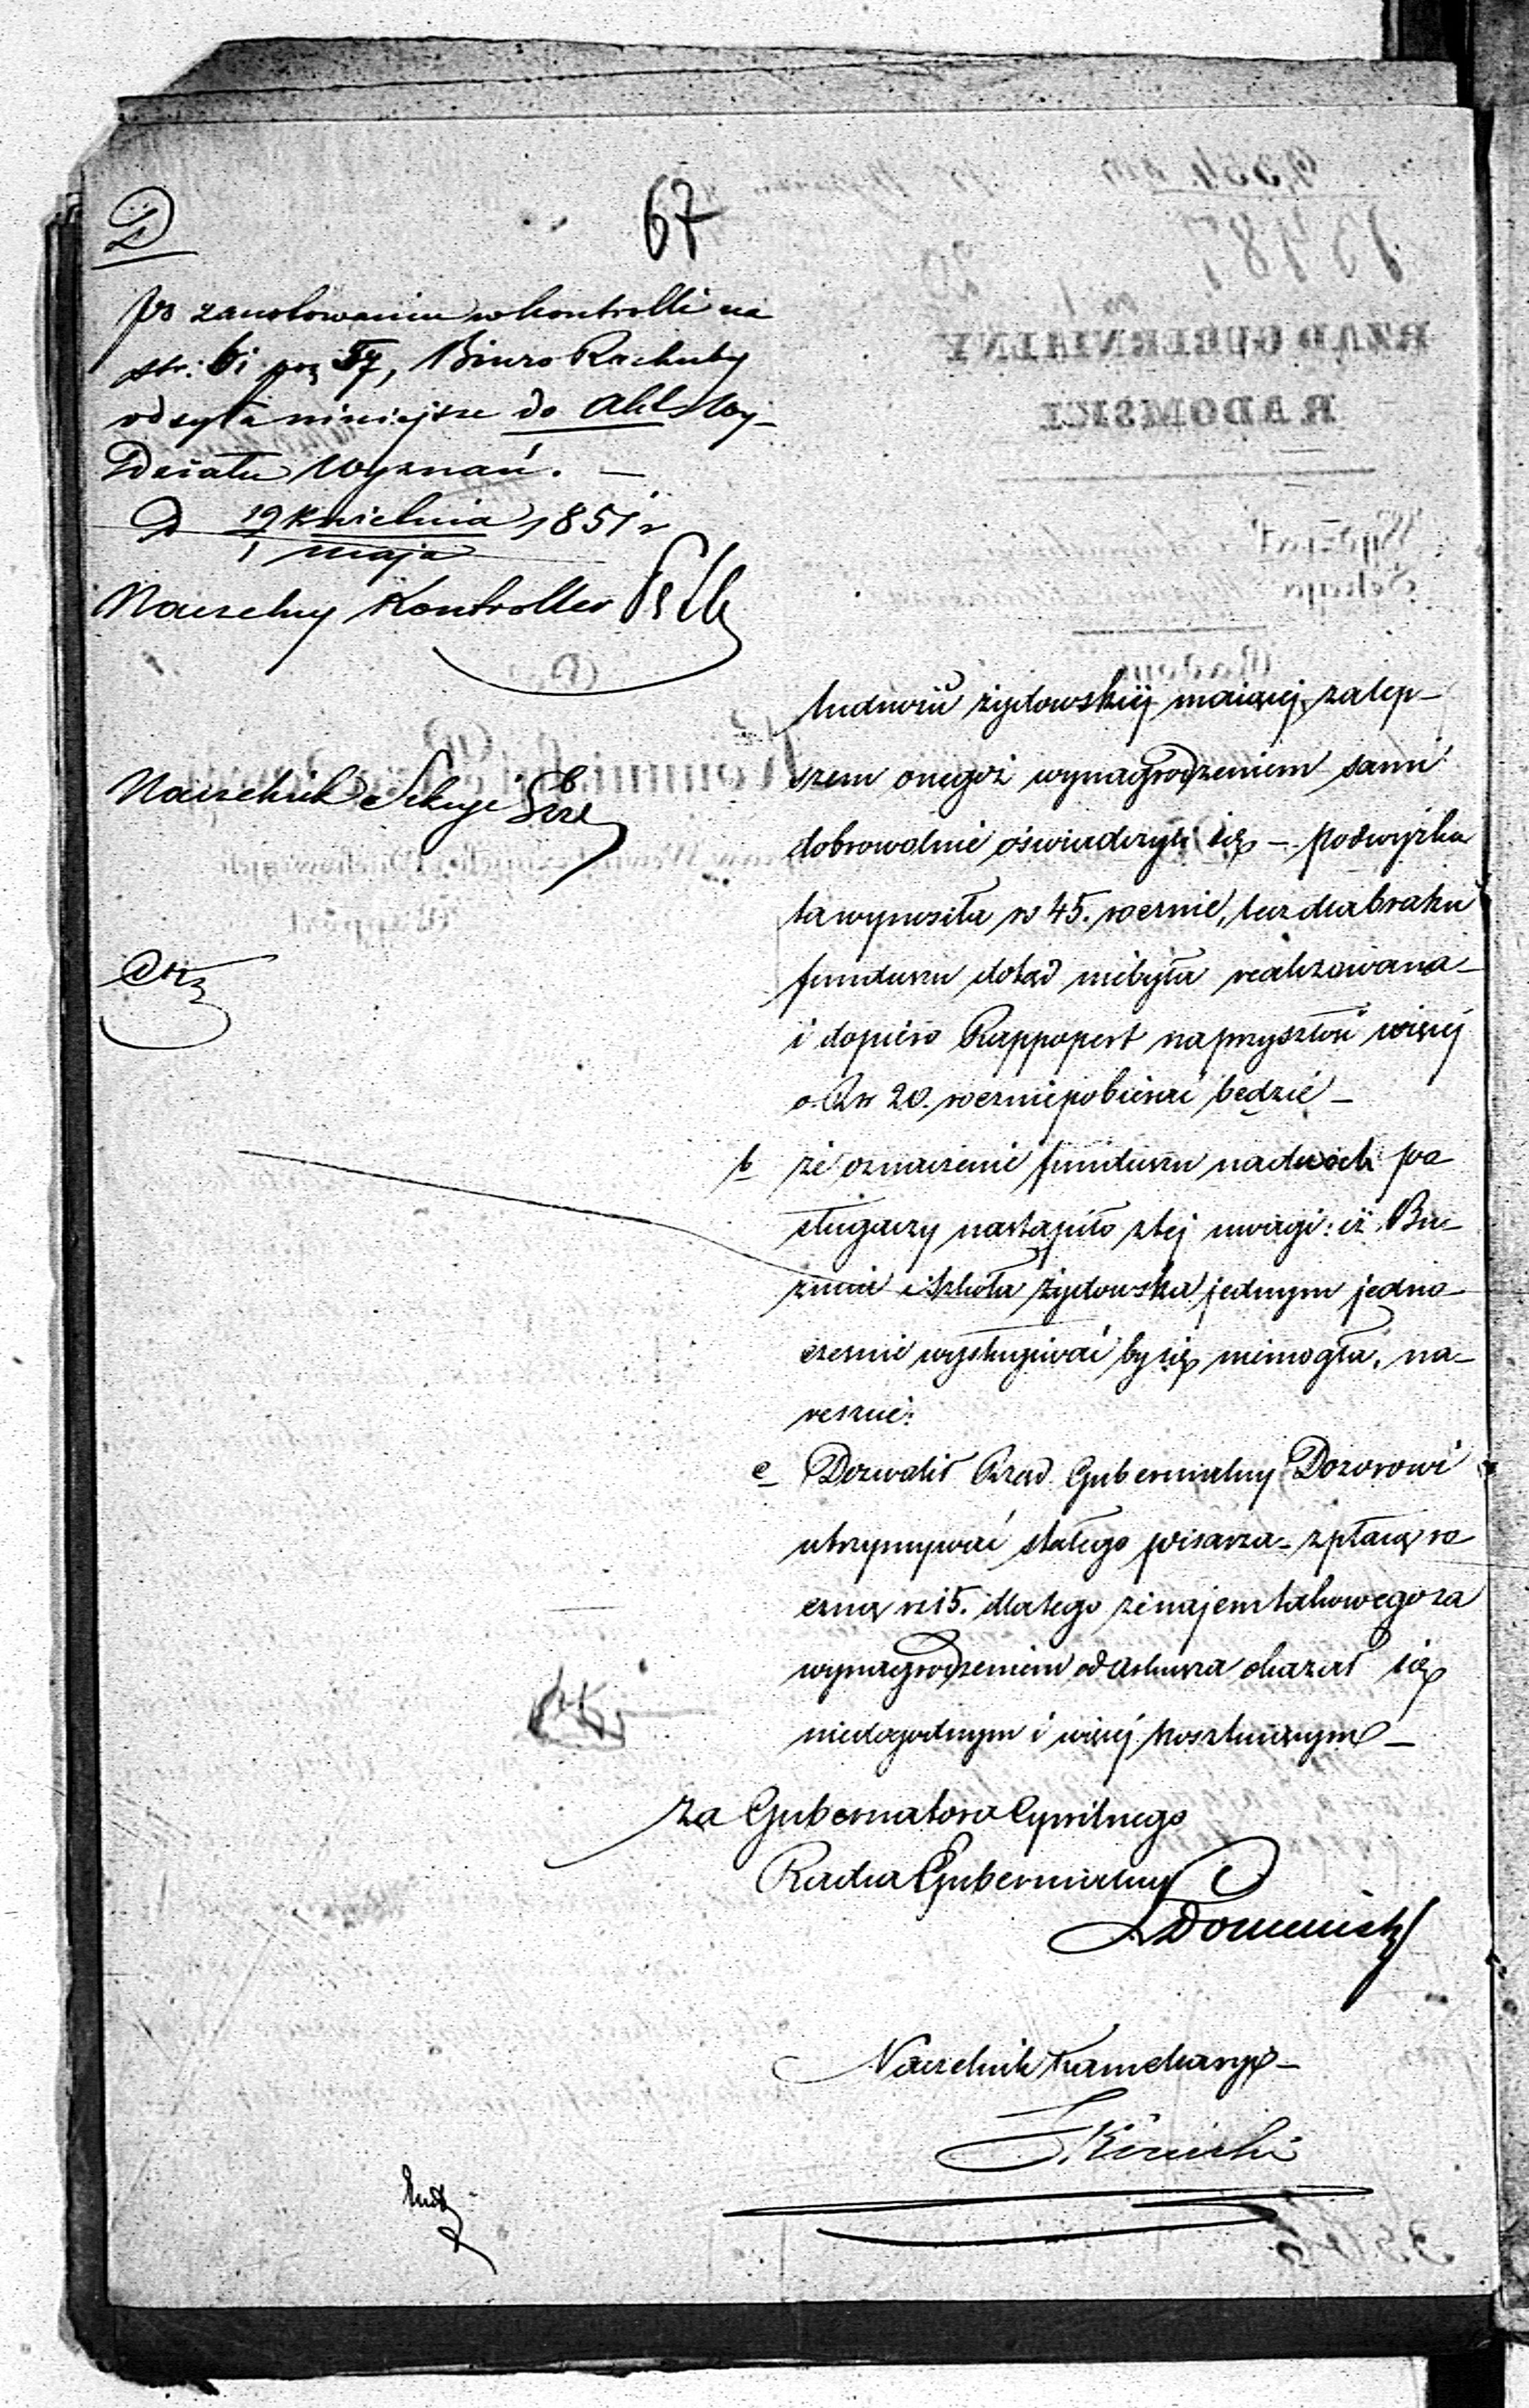 67
D
po zanotowaniu w kontrolli na
str: 61 poz 57, Biuro Rachuby
odsyła niniejsze do Akt Wy-
Działu Wyznań. —
D 19 kwietnia 1851 r
1 maja
Naczelny Kontroller
Naczelnik Sekcyi
ludności żydowskiej maiącej, zalep-
szem onegoż wynagrodzeniem sami
dobrowolnie oświadczyli się — podwyżka
ta wynosiła rs 45. rocznie, lecz dla braku
funduszu dotąd niebyła realizowana —
i dopiero Rappoport naprzyszłość więcej
o Rsr 20. rocznie pobierać będzie —
b że oznaczenie funduszu na dwóch po
sługaczy nastąpiło z tej uwagi: iż Bu-
żnica i Szkoła żydowska jednym jedno-
cześnie wysługiwać by się niemogła, na-
reszcie:
c Dozwolił Rząd Gubernialny Dozorowi
utrzymywać stałego pisarza z płacą ro
czną rs 15. dlatego że najem takowego za
wynagrodzeniem od arkusza okazał się
niedogodnym i więcej kosztownym —
Za Gubernatora Cywilnego
Radca Gubernialny
Naczelnik Kancellaryi —
RZĄD GUBERNIALNY
RADOMSKI
Wydział
Sekcya
Radom